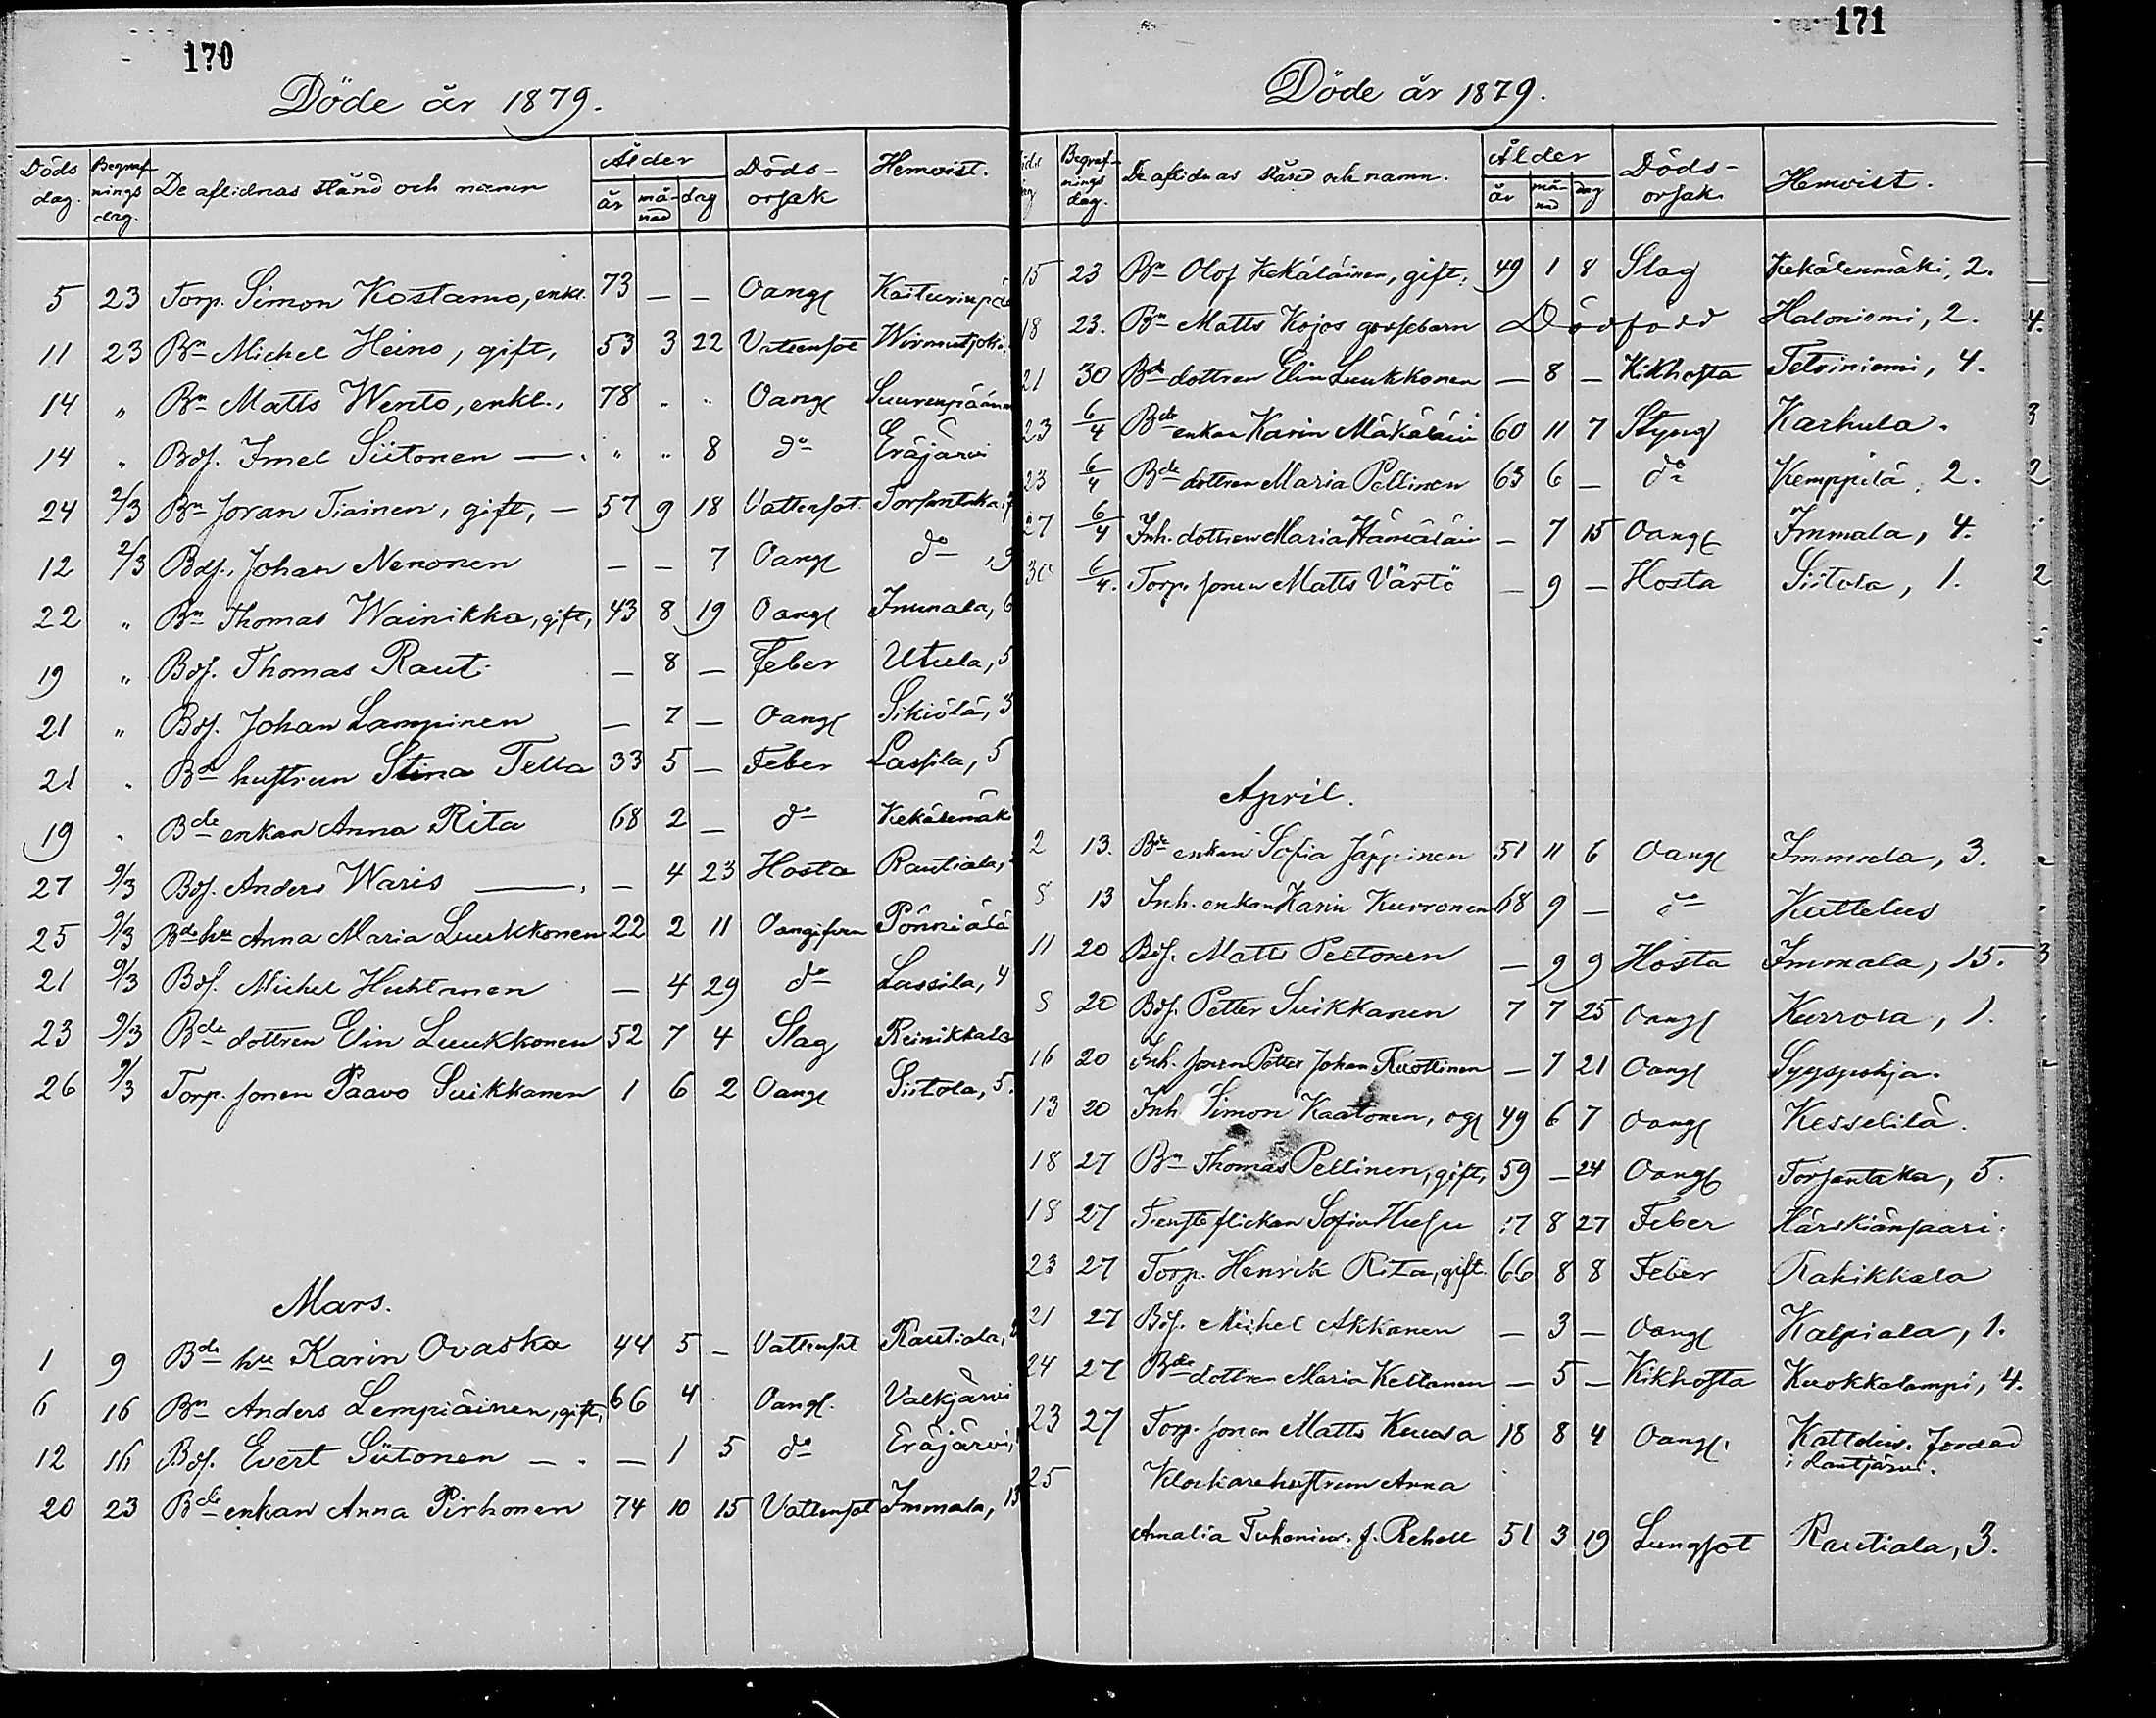 170
Döde år 1879.
Döds dag. Begrafnings dag. De aflidnas stånd och namn Ålder år månad dag Dödsorsak Hemvist.
5 23 Torp. Simon Kostamo, enkl. 73 — — Oangf Kaiturinpää
11 23 Bn Michel Heino, gift, 53 3 22 Vattensot Wirmutjoki,
14 " Bn Matts Wento, enkl., 78 " " Oangf
14 " Bdf. Imel Siitonen — " " 8 do Eräjärvi
24 2/3 Bn Joran Tiainen, gift, — 57 9 18 Vattensot Torsantaka,
12 2/3 Bdf. Johan Nenonen — — 7 Oangf do
22 " Bn Thomas Wainikka, gift, 43 8 19 Oangf Immala, 6
19 " Bdf. Thomas Rauti — 8 — Feber Utula, 5
21 " Bdf. Johan Lampinen — 7 — Oangf Sikiölä, 3
21 " Bde hustrun Stina Tella 33 5 — Feber Lassila, 5
19 " Bde enkan Anna Rita 68 2 — do Kekälemäki
27 9/3 Bdf. Anders Waris — — 4 23 Hosta Rautiala,
25 9/3 Bde hu Anna Maria Luukkonen 22 2 11 Oangifven Pönniälä
21 9/3 Bdf. Michel Huhtinen — 4 29 do Lassila, 4
23 9/3 Bde dottren Elin Luukkonen 52 7 4 Slag Reinikkala
26 9/3 Torp. sonen Paavo Suikkanen 1 6 2 Oangf Siitola, 5.
Mars.
1 9 Bde hu Karin Ovaska 44 5 — Vattensot Rautiala,
6 16 Bn Anders Lempiäinen, gift, 66 4 Oangf. Valkjärvi
12 16 Bdf. Evert Siitonen — — 1 5 do Eräjärvi,
20 23 Bde enkan Anna Pirhonen 74 10 15 Vattensot Immala, 13
171
Döde år 1879.
Begrafnings dag. De aflidnas stånd och namn. Ålder år månad dag Dödsorsak Hemvist.
15 23 Bn Olof Kekäläinen, gift, 49 1 8 Slag Kekälenmäki, 2.
18 23. Bn Matts Kojos gossebarn Dödfödd Haloniemi, 2.
21 30 Bde dottren Elin Luukkonen — 8 — Kikhosta Tetriniemi, 4.
23 6/4 Bde enkan Karin Mäkäläin 60 11 7 Styng Karhula.
23 6/4 Bde dottren Maria Pellinen 63 6 — do Kemppilä, 2.
27 6/4 Inh. dottren Maria Hämäläin — 7 15 Oangf Immala, 4.
30 6/4. Torp. sonen Matts Värtö — 9 — Hosta Siitola, 1.
April.
2 13. Bde enkan Sofia Jäppinen 51 11 6 Oangf Immala, 3.
8 13 Inh. enkan Karin Kurronen 68 9 — do Kattelus
11 20 Bdf. Matts Peltonen — 9 9 Hosta Immala, 15.
8 20 Bdf. Petter Suikkanen 7 7 25 Oangf Kurrola, 1.
16 20 Inh. sonen Petter Johan Ruottinen — 7 21 Oangf Syyspohja.
13 20 Inh Simon Kaatonen, ogf 49 6 7 Oangf Kesselilä.
18 27 Bn Thomas Pellinen, gift, 59 — 24 Oangf Torsantaka, 5.
18 27 Tensteflickan Sofia 17 8 27 Feber Härskiänsaari
23 27 Torp. Henrik Rita, gift. 66 8 8 Feber Rahikkala
21 27 Bdf. Michel Akkanen — 3 — Oangf Kalpiala, 1.
24 27 Bde dottren Maria Keltanen — 5 — Kikhosta Kuokkalampi, 4.
23 27 Torp. sonen Matts Kuusa 18 8 4 Oangf. Kattelus. Jordad i Rautjärvi.
25 Klockarehustrun Anna
Amalia f. Rehell 51 3 19 Lungsot Rautiala, 3.